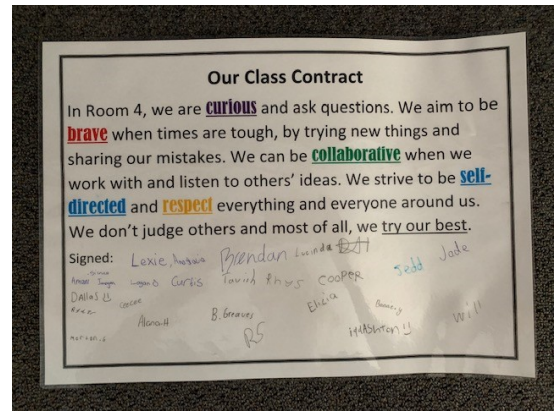 Our Class Contract
In Room 4, we are curious and ask questions. We aim to be
brave when times are tough, by trying new things and
sharing our mistakes. We can be collaborative when we
work with and listen to others' ideas. We strive to be self-
directed and respect everything and everyone around us.
We don't judge others and most of all, we try our best.
Signed: Lexie, Brendan Lucinda Jedd Jade
Curtis Rhys COOPER
DALLAS
Alana.H B. Greaves Elizia Will
RS